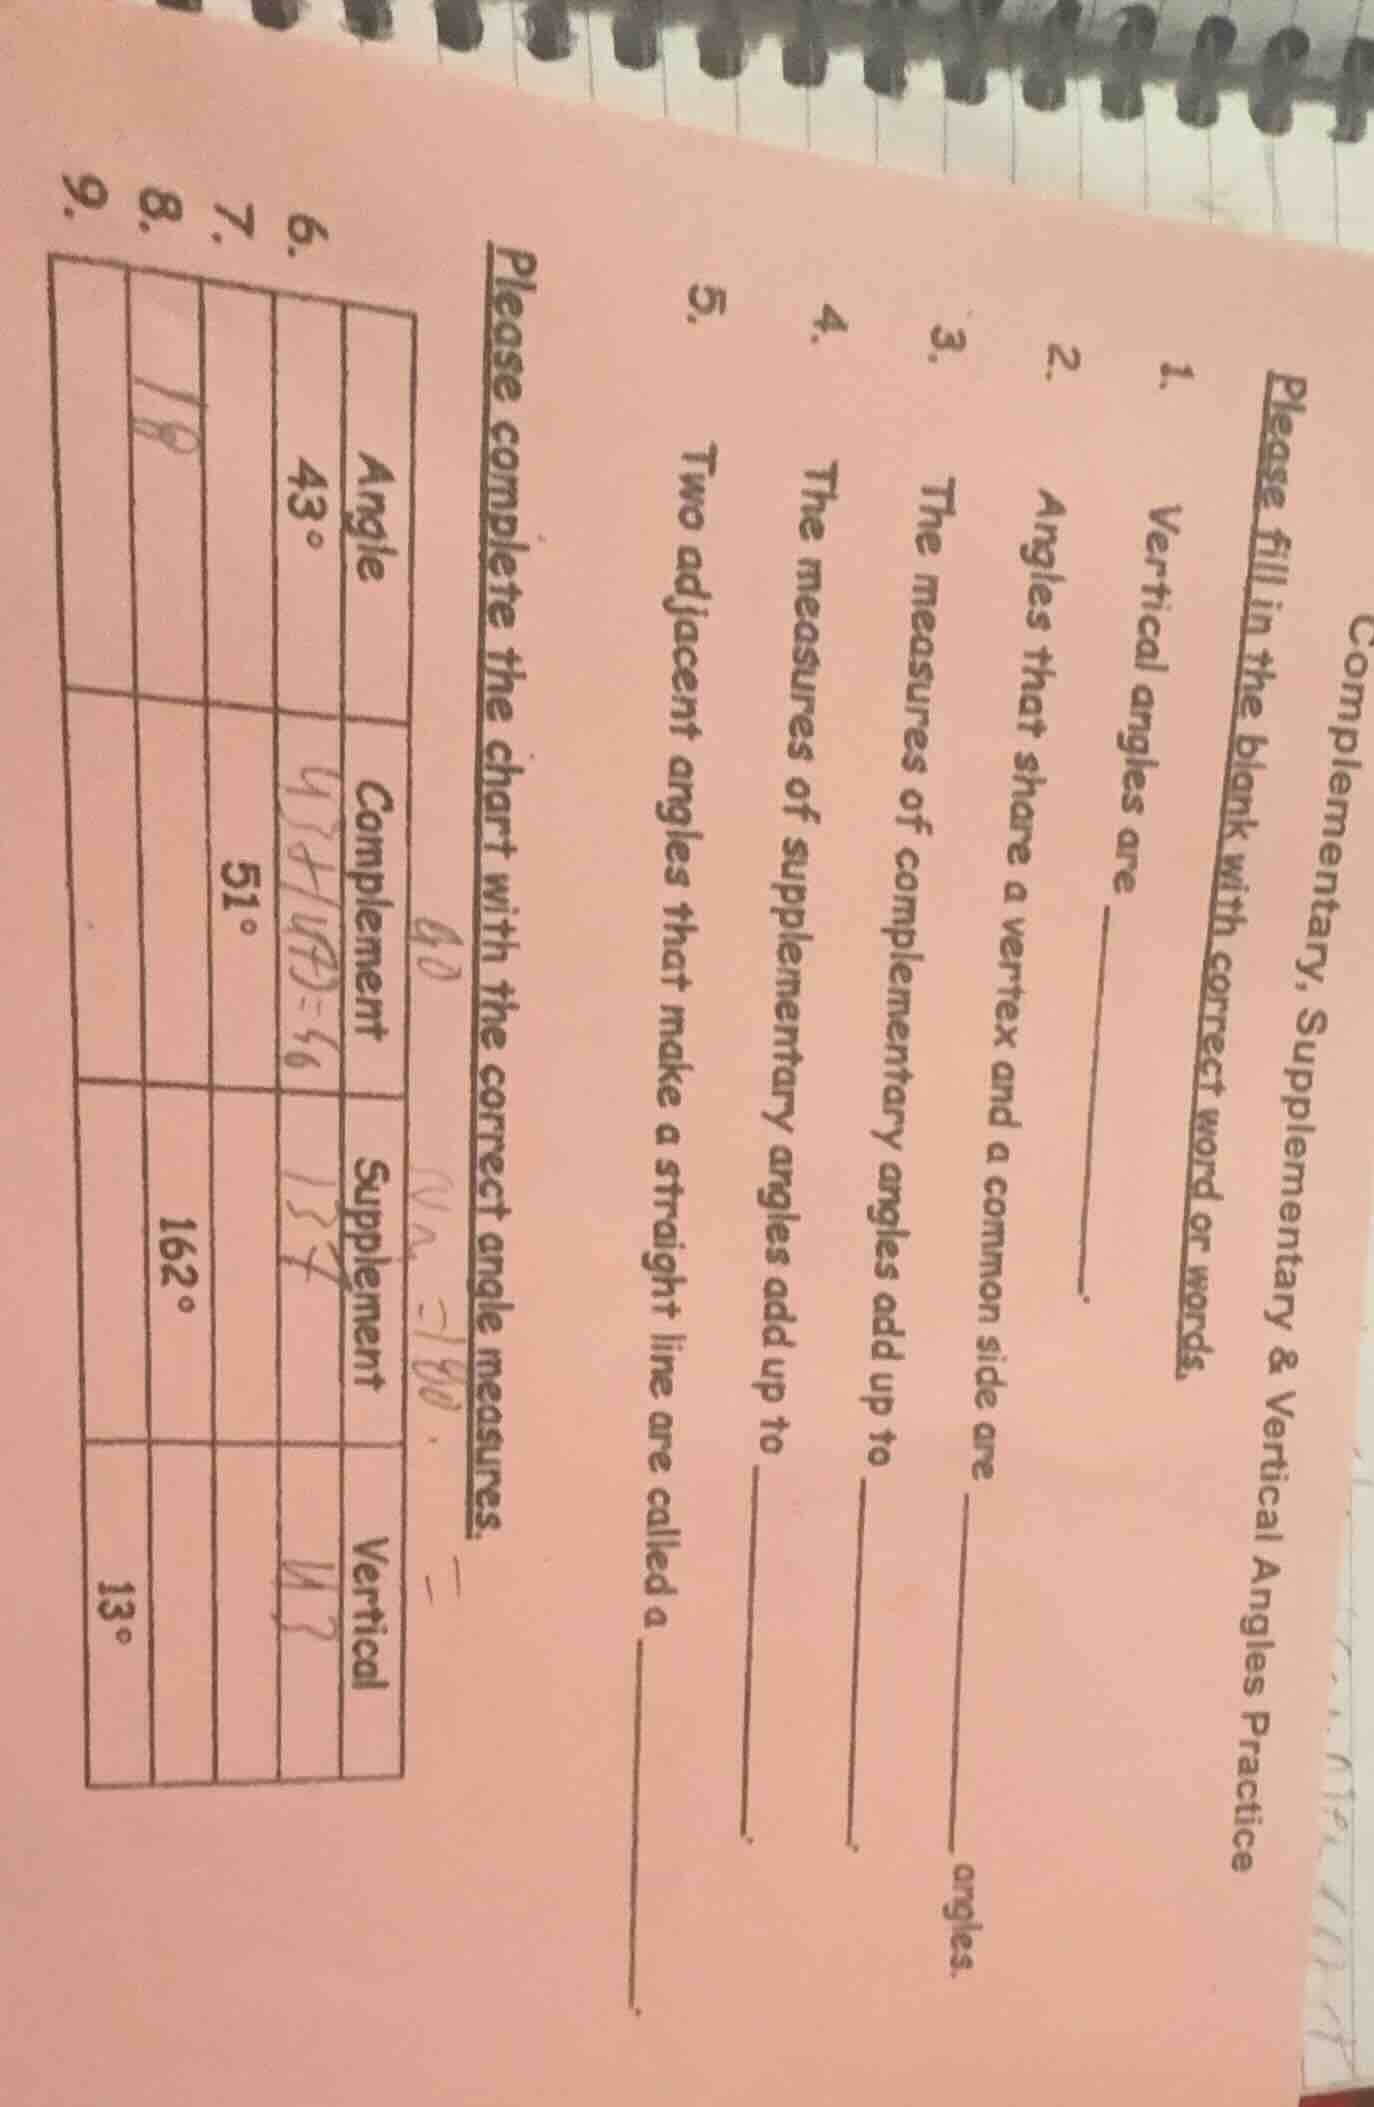 Complementary, Supplementary & Vertical Angles Practice
Please fill in the blank with correct word or words.
1. Vertical angles are ____________.
2. Angles that share a vertex and a common side are ____________ angles.
3. The measures of complementary angles add up to ____________.
4. The measures of supplementary angles add up to ____________.
5. Two adjacent angles that make a straight line are called a ____________.
Please complete the chart with the correct angle measures.
90 =180.
Angle Complement Supplement Vertical
6. 43° 137 43
7. 51°
8. 18 162°
9. 13°